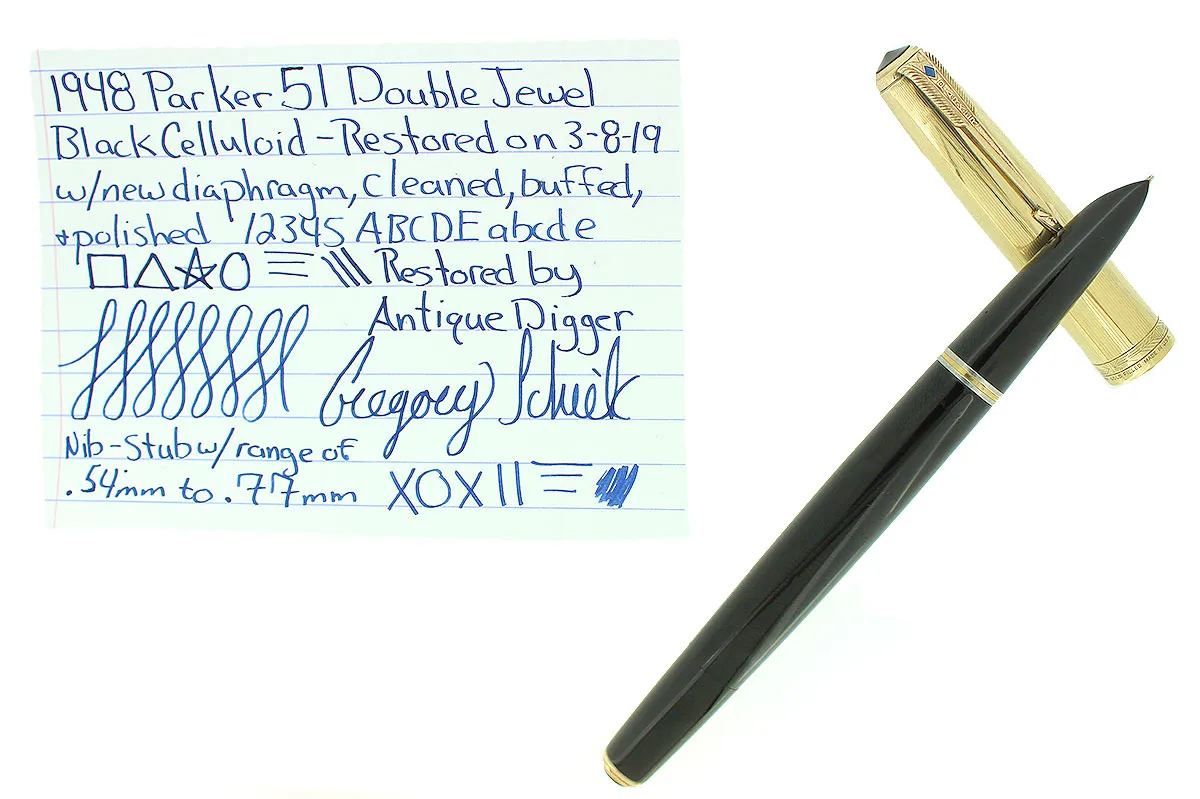 1948 Parker 51 Double Jewel
Black Celluloid - Restored on 3-8-19
w/new diaphragm, cleaned, buffed,
+polished 12345 ABCDE abcde
Restored by
Antique Digger
Gregory
Nib-Stub w/range of
.54mm to .77mm XOX ||